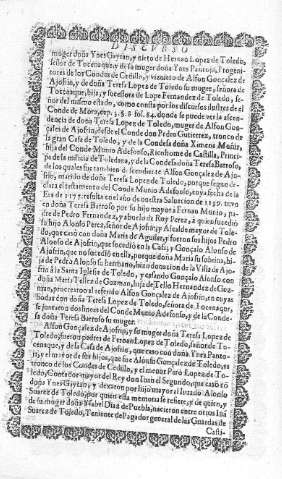 DISCVRSO
muger doña Ynes Gaytan, y nieto de Hernan Lopez de Toledo,
señor de Tocenaque, y de su muger doña Ynes Pantoja, Progeni-
tores de los Condes de Cedillo, y viznieto de Alfon Gonçalez de
Ajofrin, y de doña Teresa Lopez de Toledo su muger, señora de
Tocenaque, hija, y sucessora de Lope Fernandez de Toledo, se-
ñor del mismo estado, como consta por los discursos ilustres de el
Conde de Mora, cap. 1. §. 8. fol. 84. donde se puede ver la ascen-
dencia de doña Teresa Lopez de Toledo, muger de Alfon Gon-
çalez de Ajofrin, desde el Conde don Pedro Gutierrez, tronco de
la gran Casa de Toledo, y de la Condesa doña Ximena Muñiz,
hija del Conde Munio Adefonso, Ricohome de Castilla, Princi-
pe de la milicia de Toledana, y de la Condesa doña Teresa Barroso,
de los quales fue tambien descendiente Alfon Gonçalez de Ajo-
frin, marido de doña Teresa Lopez de Toledo, porque segun de-
clara el testamento del Conde Munio Adefonso, cuya fecha es la
Era de 1177. resulta con el año de nuestra Salud en 1139. tuvo
en doña Teresa Barroso por su hijo mayor a Fernan Munio, pa-
dre de Pedro Fernandez, y abuelo de Roy Perez, a quien sucedio
su hijo Alonso Perez, señor de Ajofrin, y Alcalde mayor de Tole-
do, que casò con doña Maria de Aguilar, y fueron sus hijos Pedro
Alonso de Ajofrin, que sucediò en la Casa, y Gonçalo Alonso de
Ajofrin, que no sucediò en ella, porque doña Maria su sobrina, hi-
ja de Pedro Alonso su hermano, hizo donacion de la Villa de Ajo-
frin à la Santa Iglesia de Toledo, y estando Gonçalo Alonso con
doña Maria Tellez de Guzman, hija de Tello Hernandez de Guz-
man, procrearon al referido Alfon Gonçalez de Ajofrin, en cuyas
bodas con doña Teresa Lopez de Toledo, señora de Tocenaque,
se juntaron dos lineas del Conde Munio Adefonso, y de la Conde-
sa doña Teresa Barroso su muger.
Alfon Gonçalez de Ajofrin, y su muger doña Teresa Lopez de
Toledo, fueron padres de Fernan Lopez de Toledo, señor de To-
cenaque, y de la Casa de Ajofrin, que casò con doña Ynes Panto-
ja, y el mayor de sus hijos, que fue Alonso Gonçalez de Toledo, es
tronco de los Condes de Cedillo, y el menor Pero Lopez de To-
ledo, Contador mayor del Rey don Iuan el Segundo, que casò cõ
doña Ynes Gaytan, y dexaron por hijo mayor al Iurado Alonso
Suarez de Toledo, por quien esta memoria se refiere, y de quien, y
de su muger doña Ysabel Diaz de Puebla, nacieron entre otros Iuan
Suarez de Toledo, Teniente de Pagador general de las Guardas de
Casti-